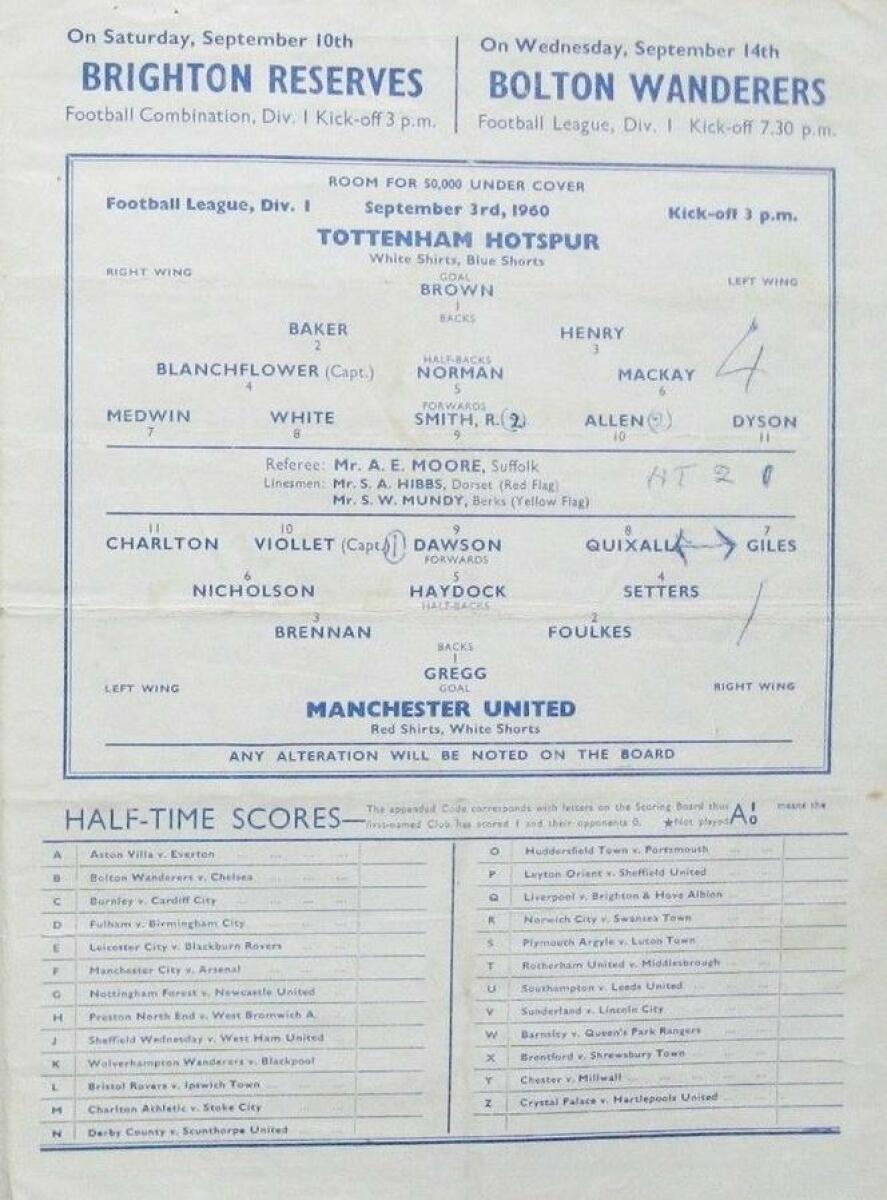 On Saturday, September 10th
BRIGHTON RESERVES
Football Combination, Div. 1 Kick-off 3 p.m.
On Wednesday, September 14th
BOLTON WANDERERS
Football League, Div. 1 Kick-off 7.30 p.m.
ROOM FOR 50,000 UNDER COVER
Football League, Div. 1 September 3rd, 1960 Kick-off 3 p.m.
TOTTENHAM HOTSPUR
White Shirts, Blue Shorts
RIGHT WING GOAL LEFT WING
BROWN
1
BACKS
BAKER HENRY
2 3
HALF-BACKS
BLANCHFLOWER (Capt.) NORMAN MACKAY 4
4 5 6
FORWARDS
MEDWIN WHITE SMITH, R. (2) ALLEN (2) DYSON
7 8 9 10 11
Referee: Mr. A. E. MOORE, Suffolk
Linesmen: Mr. S. A. HIBBS, Dorset (Red Flag)
Mr. S. W. MUNDY, Berks (Yellow Flag)
HT 2 0
11 10 9 8 7
CHARLTON VIOLLET (Capt.) (1) DAWSON QUIXALL GILES
FORWARDS
6 5 4
NICHOLSON HAYDOCK SETTERS
HALF-BACKS
1
3 2
BRENNAN FOULKES
BACKS
1
GREGG
LEFT WING GOAL RIGHT WING
MANCHESTER UNITED
Red Shirts, White Shorts
ANY ALTERATION WILL BE NOTED ON THE BOARD
HALF-TIME SCORES— The appended Code corresponds with letters on the Scoring Board thus A 1 0 means the
first-named Club has scored 1 and their opponents 0. ★Not played
A Aston Villa v. Everton
B Bolton Wanderers v. Chelsea
C Burnley v. Cardiff City
D Fulham v. Birmingham City
E Leicester City v. Blackburn Rovers
F Manchester City v. Arsenal
G Nottingham Forest v. Newcastle United
H Preston North End v. West Bromwich A.
J Sheffield Wednesday v. West Ham United
K Wolverhampton Wanderers v. Blackpool
L Bristol Rovers v. Ipswich Town
M Charlton Athletic v. Stoke City
N Derby County v. Scunthorpe United
O Huddersfield Town v. Portsmouth
P Leyton Orient v. Sheffield United
Q Liverpool v. Brighton & Hove Albion
R Norwich City v. Swansea Town
S Plymouth Argyle v. Luton Town
T Rotherham United v. Middlesbrough
U Southampton v. Leeds United
V Sunderland v. Lincoln City
W Barnsley v. Queen's Park Rangers
X Brentford v. Shrewsbury Town
Y Chester v. Millwall
Z Crystal Palace v. Hartlepools United